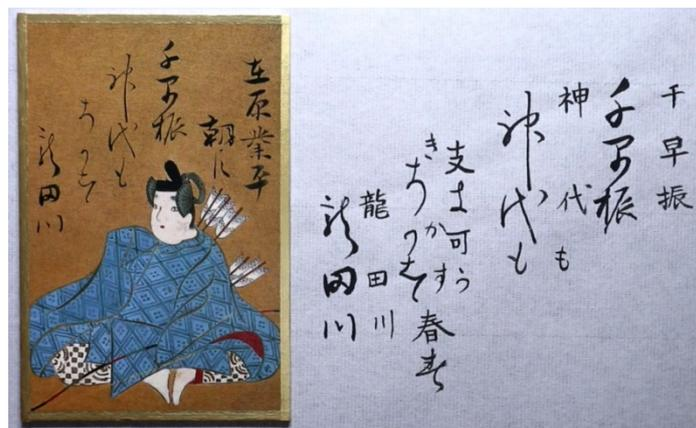 在原業平
朝臣
千早振
神代も
きかす
龍田川
千早振
千早振
神代も
神代も
支 可
きかす
春
龍田川
龍田川